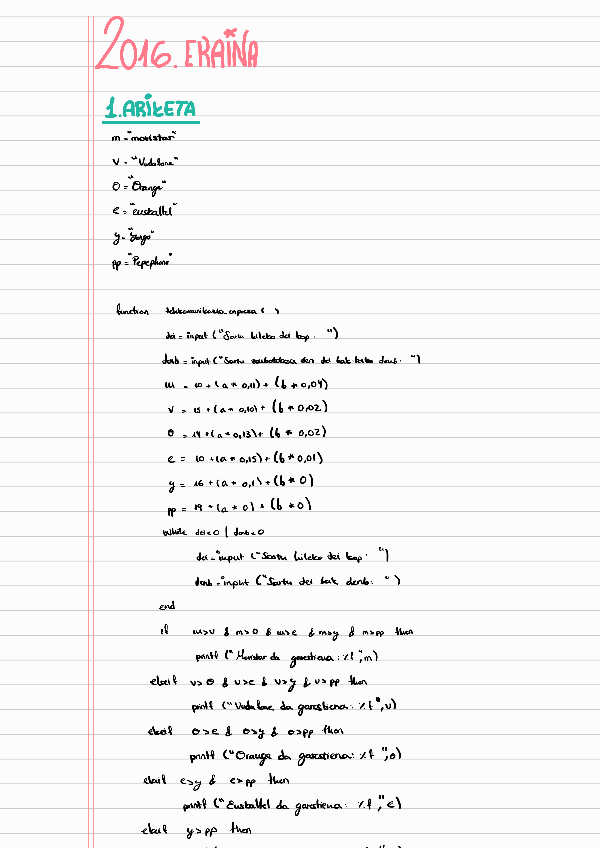 2016. EKAINA
1. ARIKETA
m = "movistar"
V = "Vodafone"
O = "Orange"
e = "euskaltel"
y = "Yoigo"
pp = "Pepephone"
function telekomunikazio_enpresa ( )
dei = input ("Sartu hileko dei kop: ")
denb = input ("Sartu dei bat denb: ")
m = 10 + (a * 0,11) + (b * 0,04)
V = 15 + (a * 0,10) + (b * 0,02)
O = 14 + (a * 0,13) + (b * 0,02)
e = 10 + (a * 0,15) + (b * 0,01)
y = 16 + (a * 0,1) + (b * 0)
pp = 19 + (a * 0) + (b * 0)
While dei<0 | denb<0
dei = input ("Sartu hileko dei kop: ")
denb = input ("Sartu dei bat denb: ")
end
if m>v & m>o & m>e & m>y & m>pp then
printf ("Movistar da garestiena: %f", m)
elseif v>o & v>e & v>y & v>pp then
printf ("Vodafone da garestiena: %f", v)
elseif o>e & o>y & o>pp then
printf ("Orange da garestiena: %f", o)
elseif e>y & e>pp then
printf ("Euskaltel da garestiena: %f", e)
elseif y>pp then